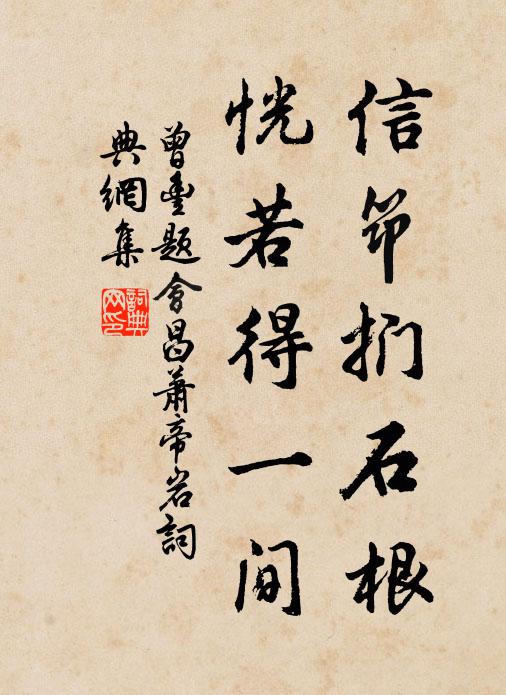 信筇捫石根
恍若得一間
曾豐題會昌蕭帝岩詞
典網集
詞典
网印